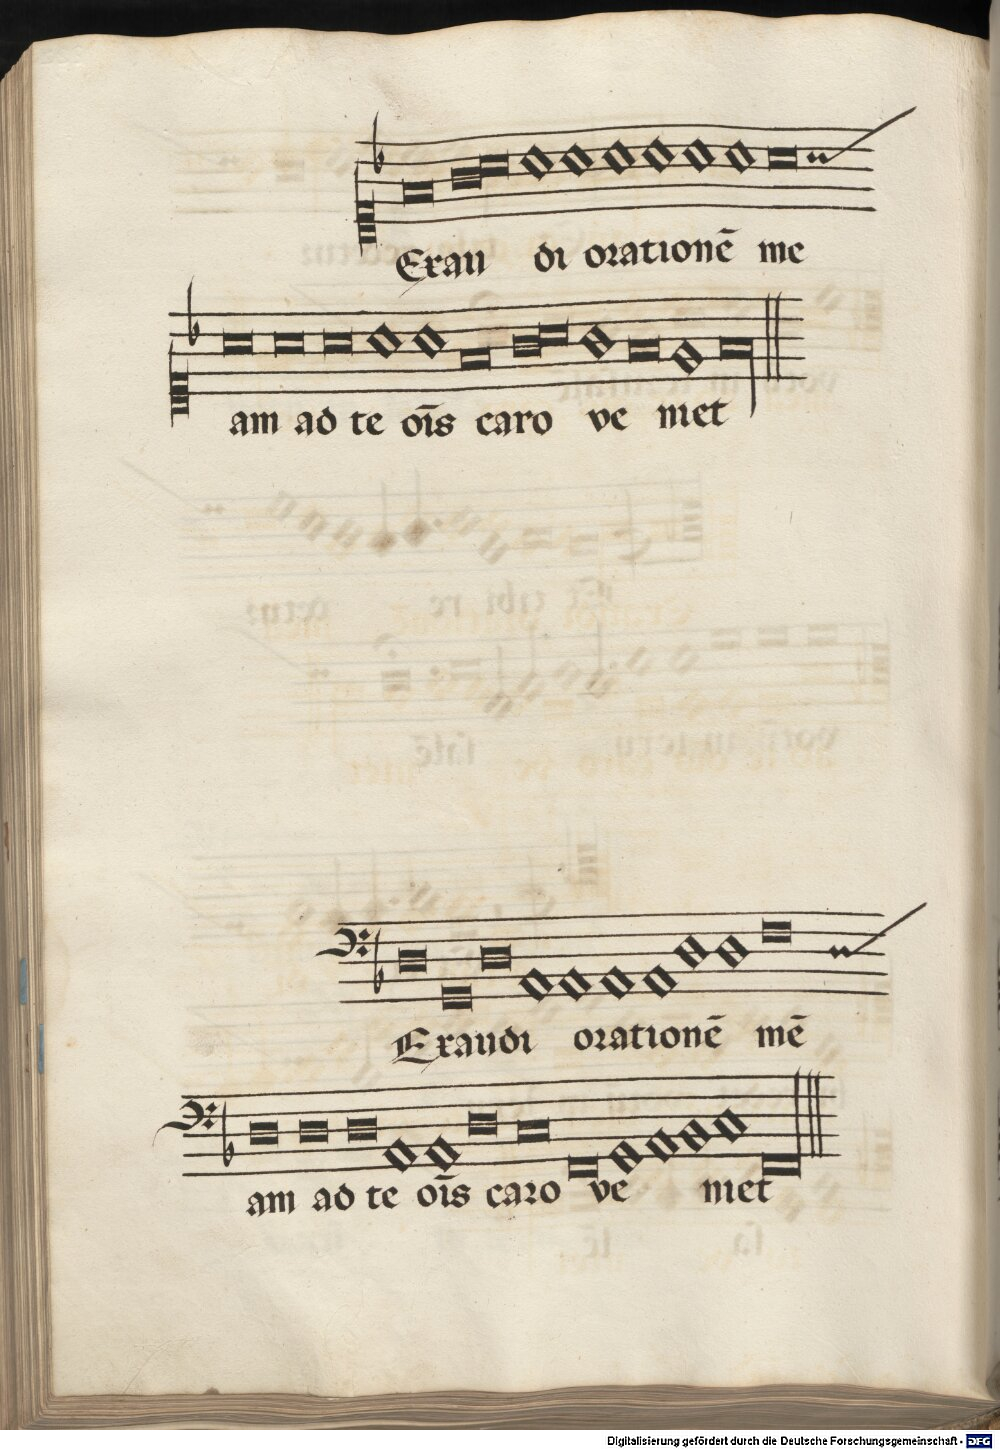 Exau di orationē me
am ad te oīs caro ve niet
Exaudi orationē mē
am ad te oīs caro ve niet
Digitalisierung gefördert durch die Deutsche Forschungsgemeinschaft - DFG